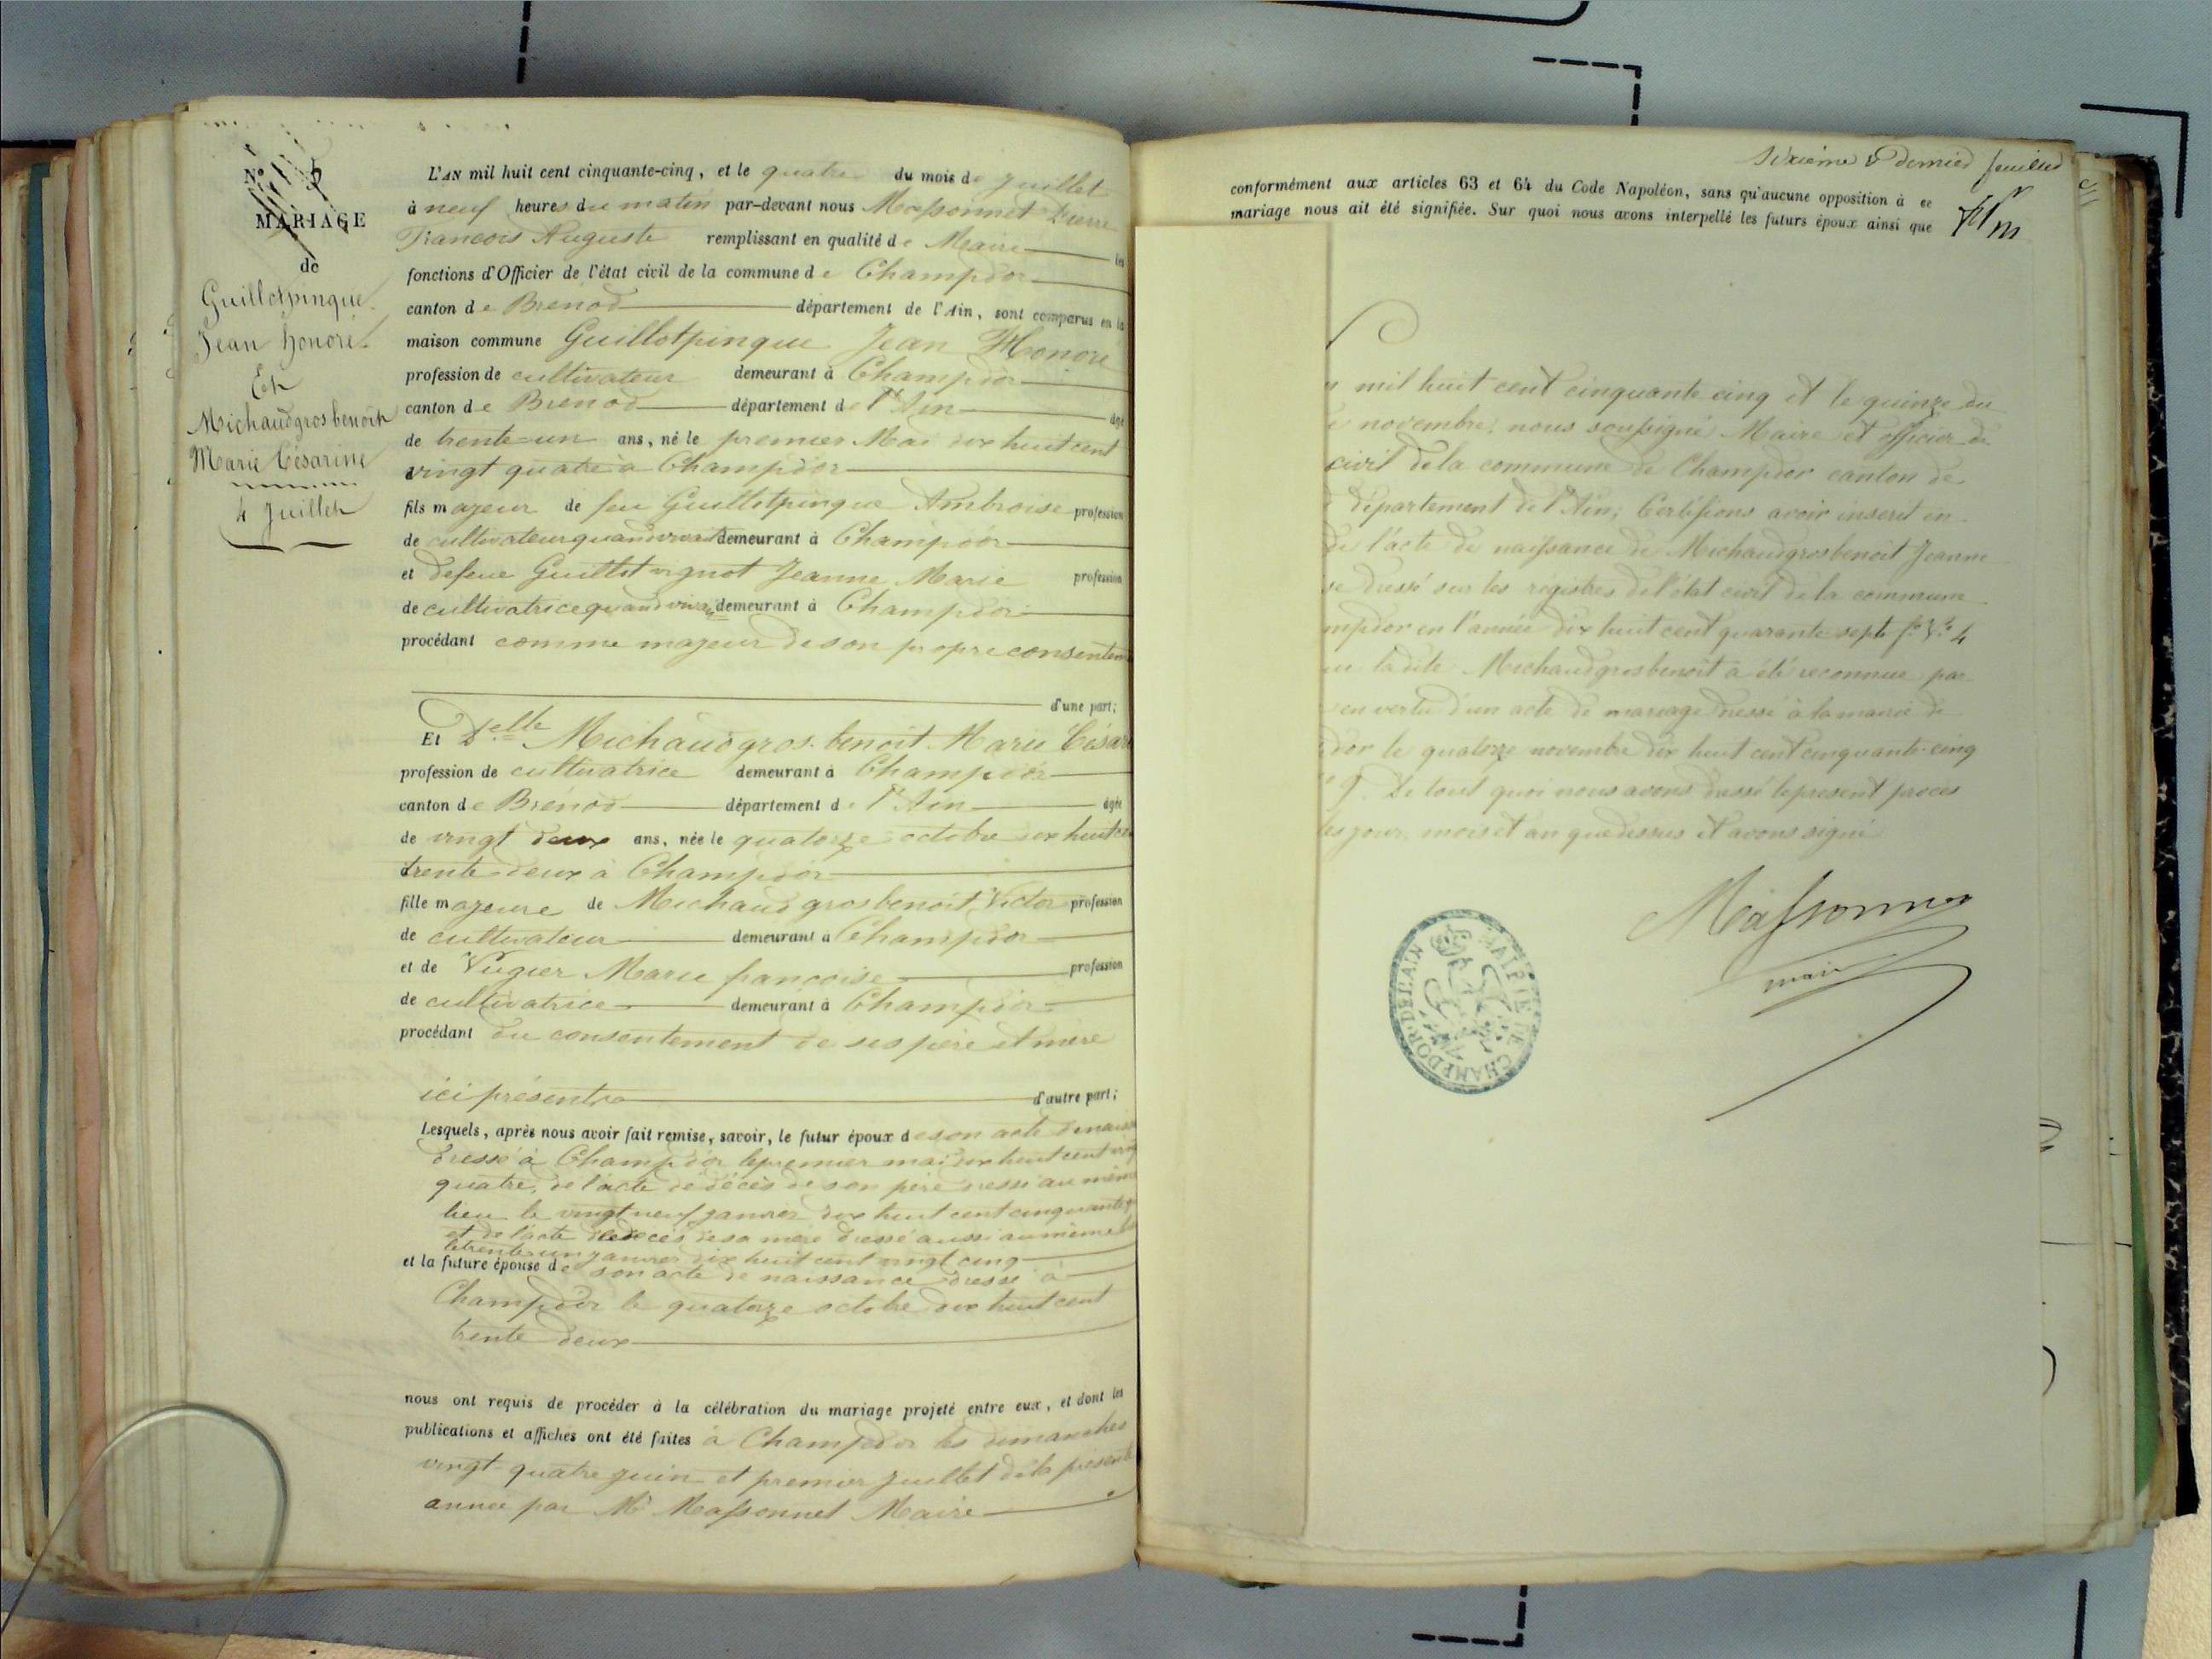 N° 5
MARIAGE
de
Guillotpinque
Jean honoré
Et
Michaudgrosbenoit
Marie Césarine
4 Juillet
L'AN mil huit cent cinquante-cinq, et le quatre du mois de Juillet
à neuf heures du matin par-devant nous Massonnet Pierre
François Auguste remplissant en qualité de Maire les
fonctions d'Officier de l'état civil de la commune de Champdor
canton de Brénod département de l'Ain, sont comparus en la
maison commune Guillotpinque Jean Honoré
profession de cultivateur demeurant à Champdor
canton de Brénod département de l'Ain âgé
de trente-un ans, né le premier Mai dix huit cent
vingt quatre à Champdor
fils majeur de feu Guillotpinque Ambroise profession
de cultivateur quand vivait demeurant à Champdor
et defeue Guillot vignot Jeanne Marie profession
de cultivatrice quand vivait demeurant à Champdor
procédant comme majeur de son propre consentem
d'une part;
Et Delle Michaudgros-benoit Marie César
profession de cultivatrice demeurant à Champdor
canton de Brénod département de l'Ain âgée
de vingt deux ans, née le quatorze octobre dix huit ce
trente deux à Champdor
fille majeure de Michaud grosbenoit Victor profession
de cultivateur demeurant à Champdor
et de Vugier Marie françoise profession
de cultivatrice demeurant à Champdor
procédant du consentement de ses père et mère
ici présents d'autre part;
Lesquels, après nous avoir fait remise, savoir, le futur époux de son acte de naiss
dressé à Champdor le premier mai dix huit cent ving
quatre, de l'acte de décès de son père dressé au même
lieu le vingt neuf janvier dix huit cent cinquante
et de l'acte de décès de sa mère dressé aussi au même
le trente un janvier dix huit cent vingt cinq
et la future épouse de son acte de naissance dressé à
Champdor le quatorze octobre dix huit cent
trente deux
nous ont requis de procéder à la célébration du mariage projeté entre eux, et dont les
publications et affiches ont été faites à Champdor les dimanches
vingt-quatre juin et premier Juillet de la présente
année par Mr Massonnet Maire
Sixième & dernier feuillet
conformément aux articles 63 et 64 du Code Napoléon, sans qu'aucune opposition à ce
mariage nous ait été signifiée. Sur quoi nous avons interpellé les futurs époux ainsi que
mil huit cent cinquante cinq et le quinze du
novembre, nous soussigné Maire et officier de
civil de la commune de Champdor canton de
département de l'Ain; Certifions avoir inscrit en
de l'acte de naissance de Michaudgrosbenoit Jeanne
se dressé sur les registres de l'état civil de la commune
mpdor en l'année dix huit cent quarante sept f° V° 4
ladite Michaudgrosbenoit a été reconnue par
en vertu d'un acte de mariage dressé à la mairie de
dor le quatorze novembre dix huit cent cinquante-cinq
9. De tout quoi nous avons dressé le présent procès
les jour, mois et an que dessus et avons signé
Massonnet
maire
MAIRIE DE CHAMPDOR DE L'AIN